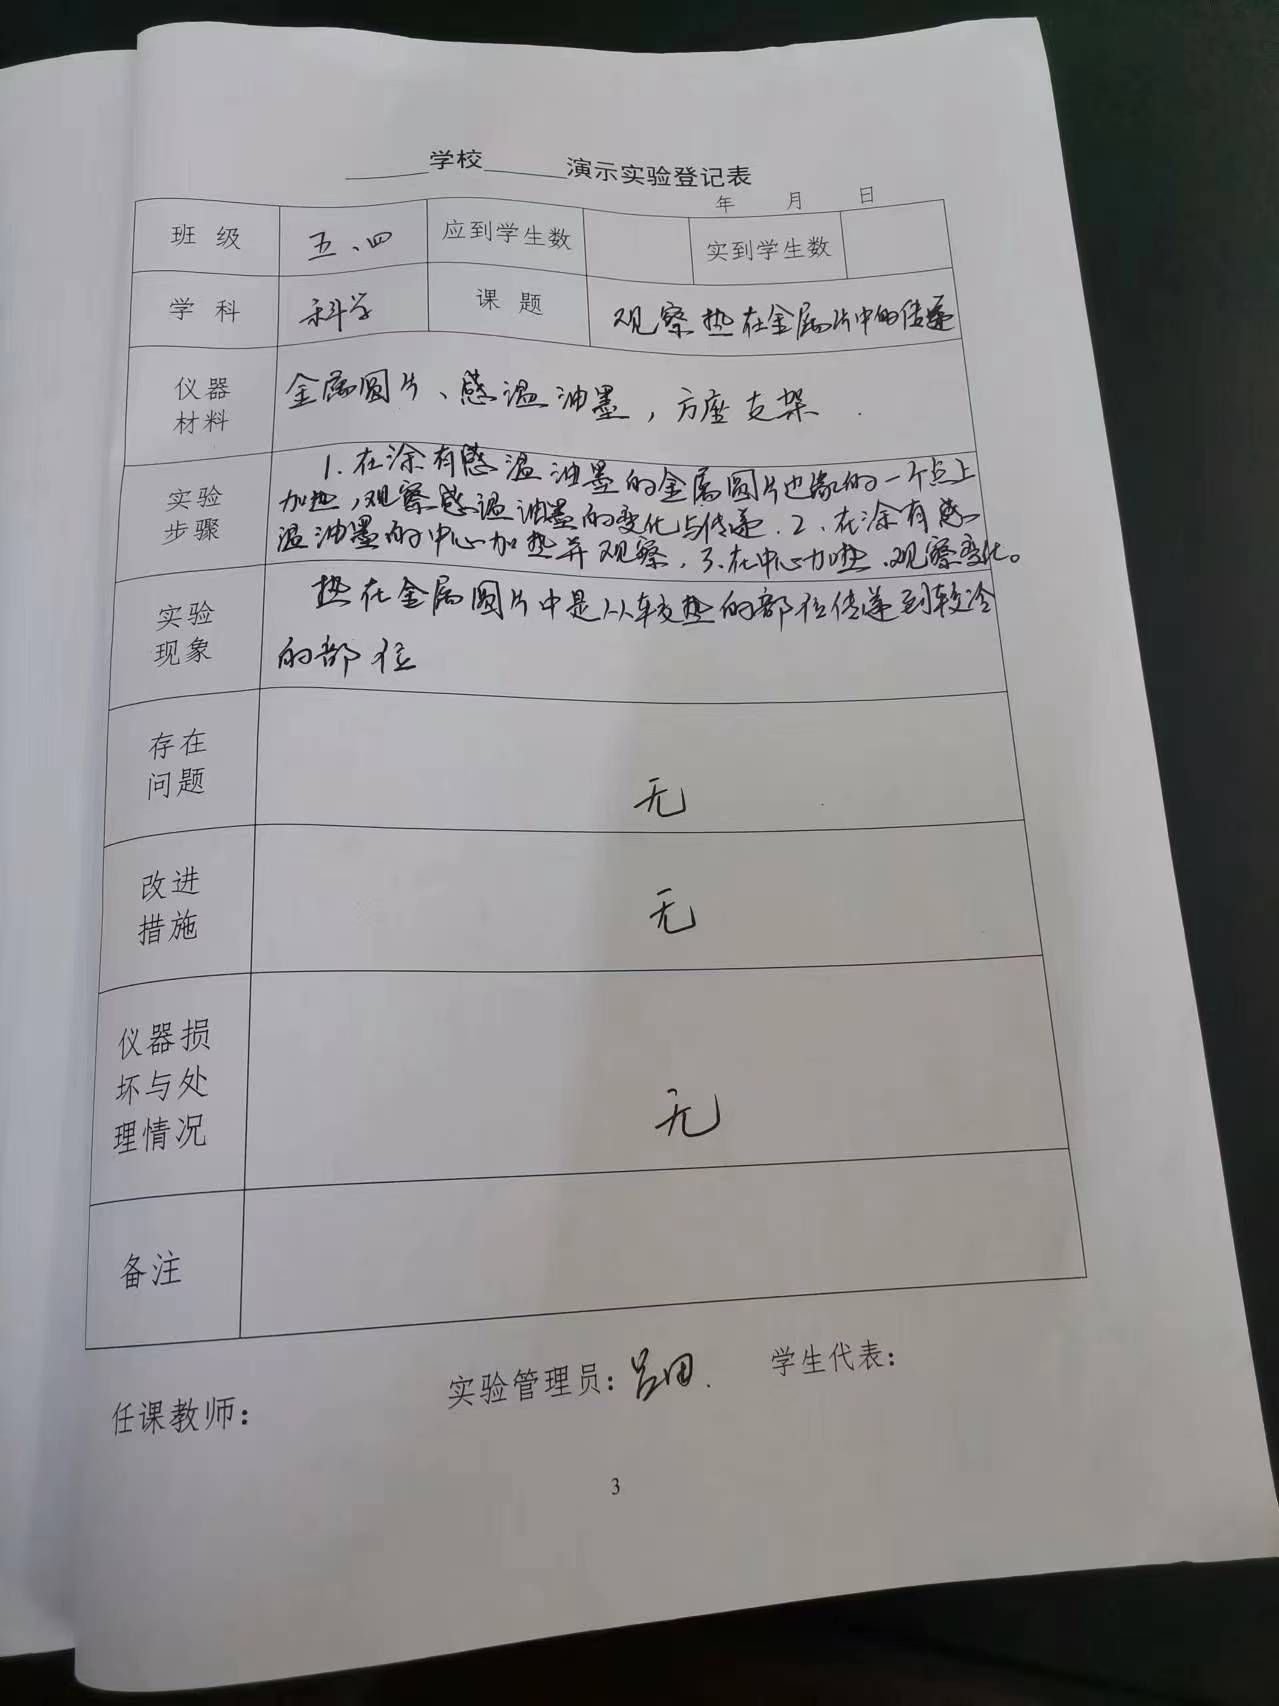 ______学校______演示实验登记表
年 月 日
班 级 五、四 应到学生数 实到学生数
学 科 科学 课 题 观察热在金属片中的传递
仪器
材料
金属圆片、感温油墨，方座支架.
实验
步骤
1. 在涂有感温油墨的金属圆片边缘的一个点上
加热，观察感温油墨的变化与传递. 2、在涂有感
温油墨的中心加热并观察. 3.在中心加热、观察变化。
实验
现象
热在金属圆片中是从较热的部位传递到较冷
的部位
存在
问题
无
改进
措施
无
仪器损
坏与处
理情况
无
备注
任课教师： 实验管理员：吕田. 学生代表：
3